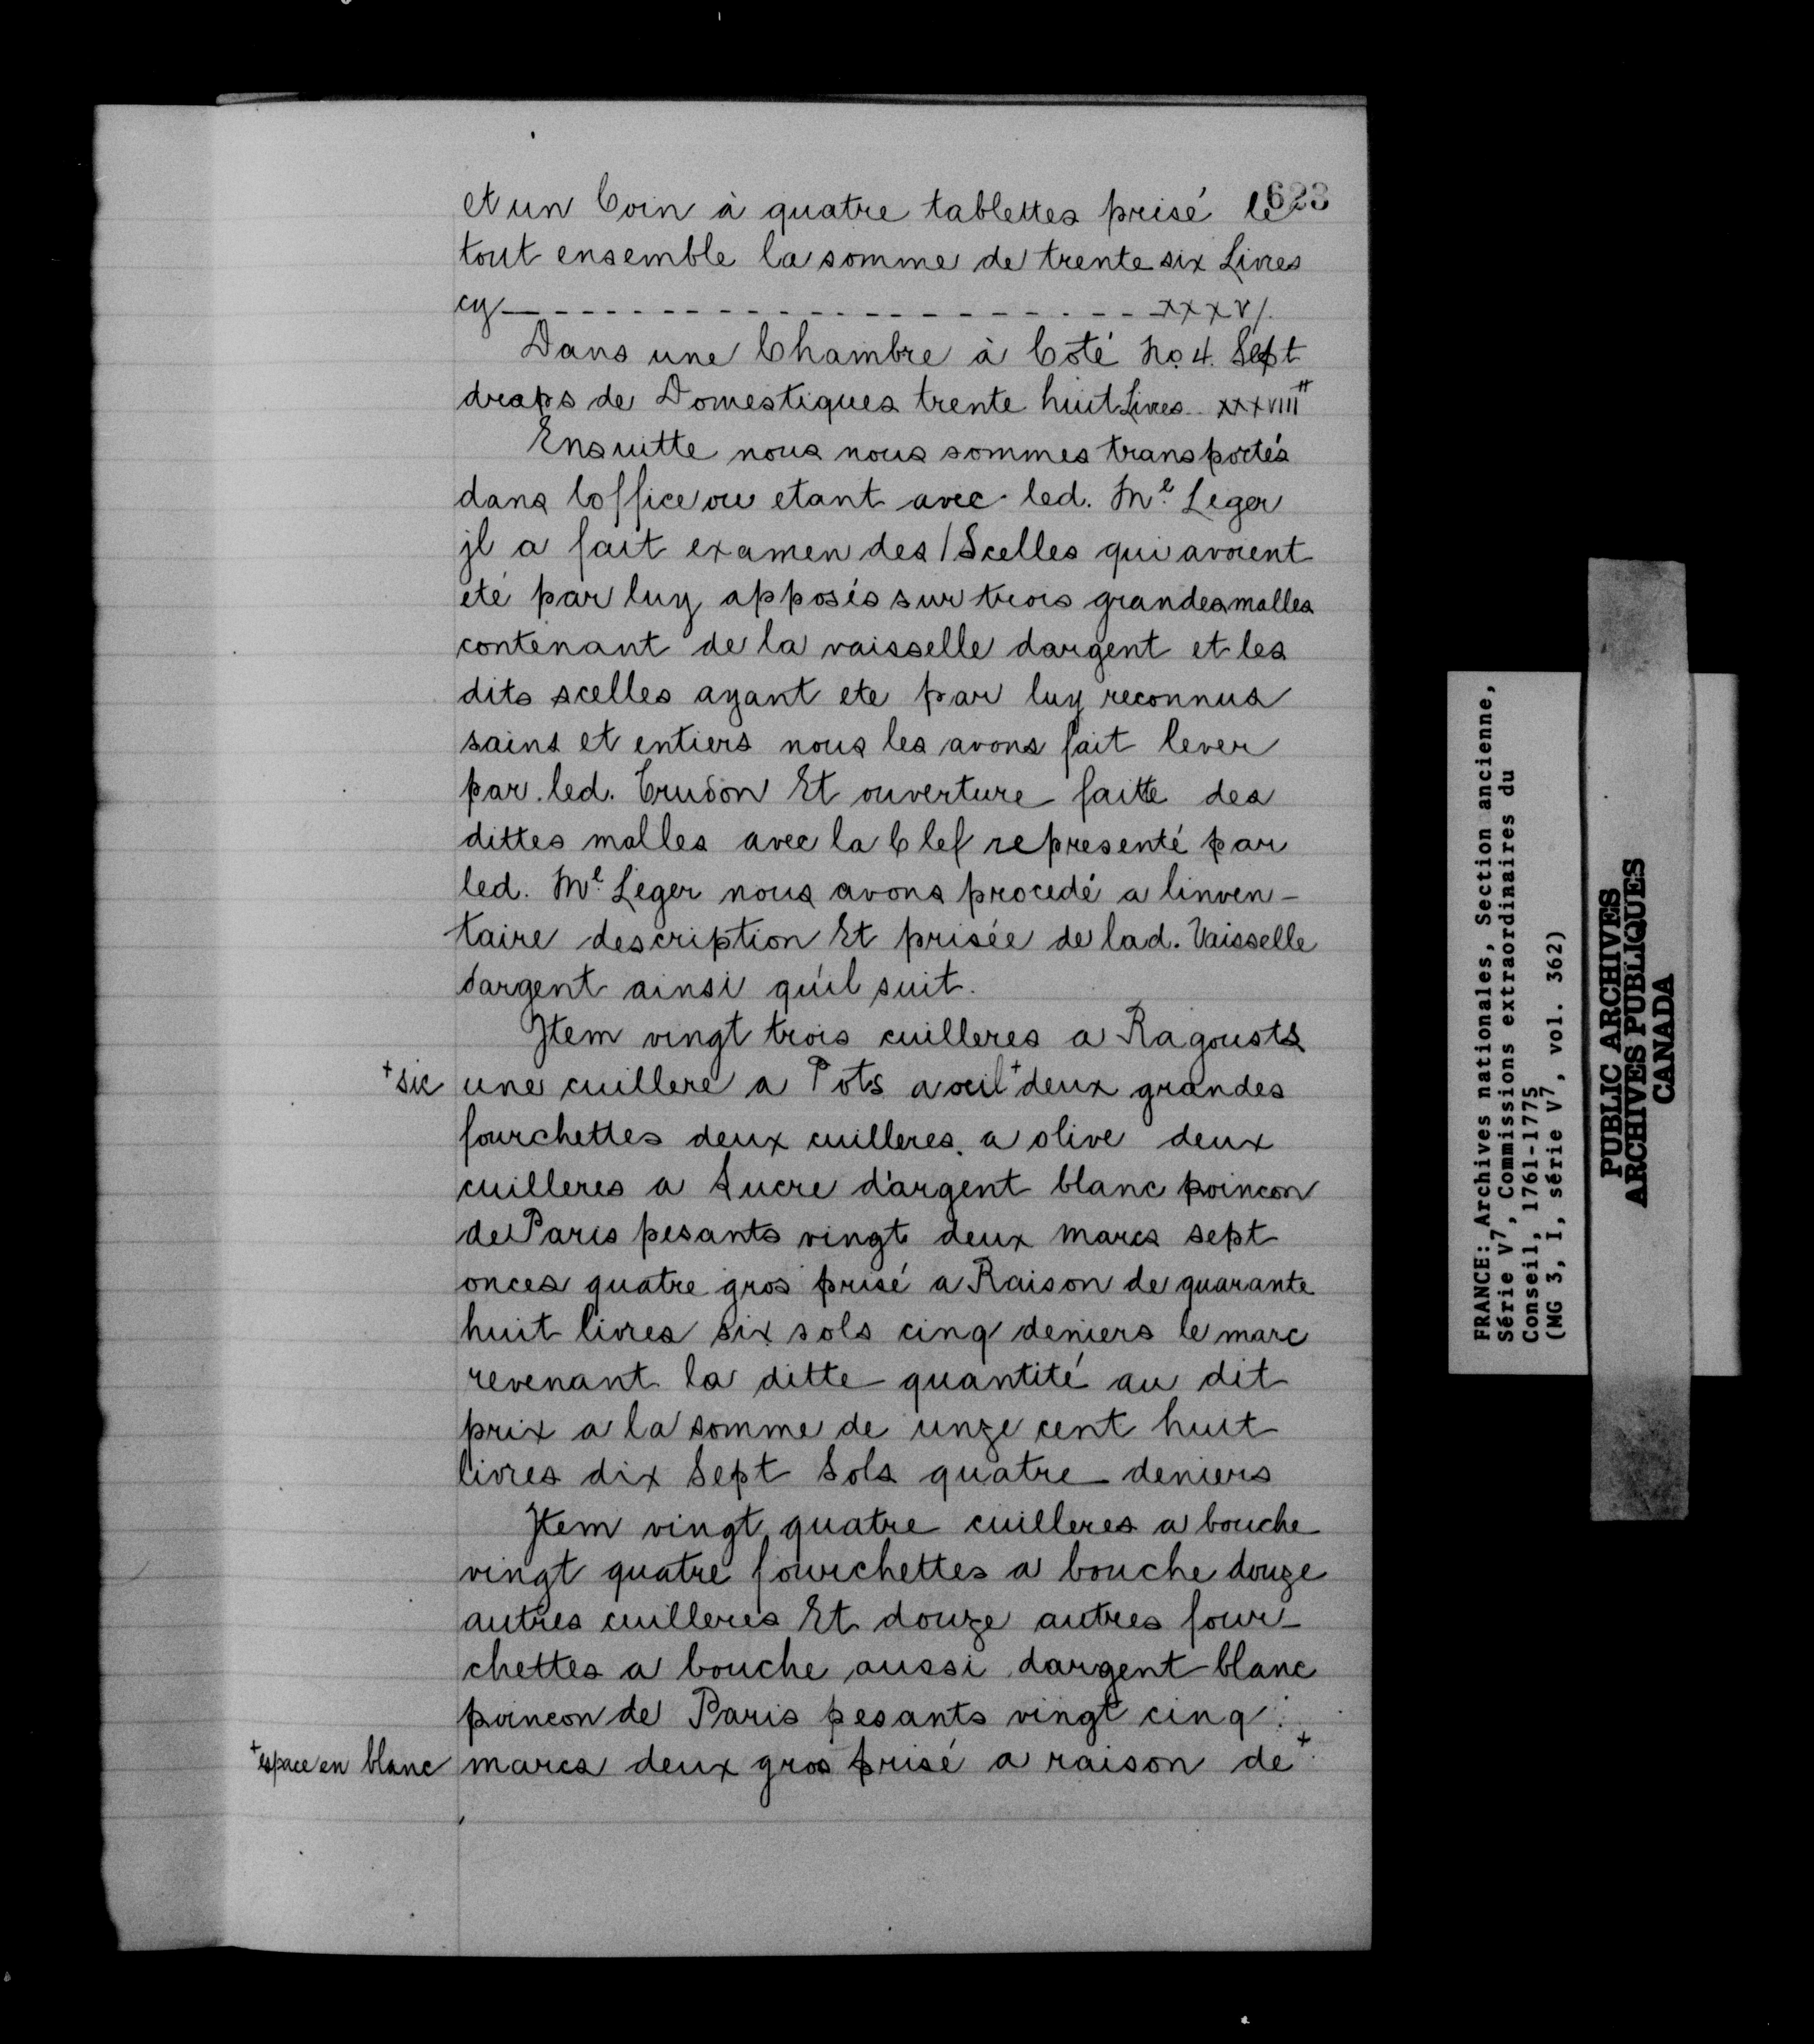 623
et un Coin à quatre tablettes prisé le
tout ensemble la somme de trente six Livres
cy - - - - - - - - - - - - - - - - - - - - - - xxxvj.
Dans une Chambre à Coté No. 4. Sept
draps de Domestiques trente huit Livres .. xxxviii#
Ensuitte nous nous sommes transportés
dans loffice ou etant avec led. Me. Leger
jl a fait examen des Scelles qui avoient
eté par luy apposés sur trois grandes malles
contenant de la vaisselle dargent et les
dits scelles ayant ete par luy reconnus
sains et entiers nous les avons fait lever
par led. Trudon Et ouverture faitte des
dittes malles avec la Clef representé par
led. Me. Leger nous avons procedé a linven-
taire description Et prisée de lad. Vaisselle
dargent ainsi qu'il suit.
Jtem vingt trois cuilleres a Ragousts
+sic une cuillere a Pots a oeil+ deux grandes
fourchettes deux cuilleres a olive deux
cuilleres a Sucre d'argent blanc poincon
de Paris pesants vingt deux marcs sept
onces quatre gros prisé a Raison de quarante
huit livres six sols cinq deniers le marc
revenant la ditte quantité au dit
prix a la somme de unze cent huit
livres dix Sept Sols quatre deniers
Jtem vingt quatre cuilleres a bouche
vingt quatre fourchettes a bouche douze
autres cuilleres Et douze autres four-
chettes a bouche aussi dargent blanc
poincon de Paris pesants vingt cinq
+espace en blanc marcs deux gros prisé a raison de+
FRANCE: Archives nationales, Section ancienne,
Série V7, Commissions extraordinaires du
Conseil, 1761-1775
(MG 3, I, série V7, vol. 362)
PUBLIC ARCHIVES
ARCHIVES PUBLIQUES
CANADA